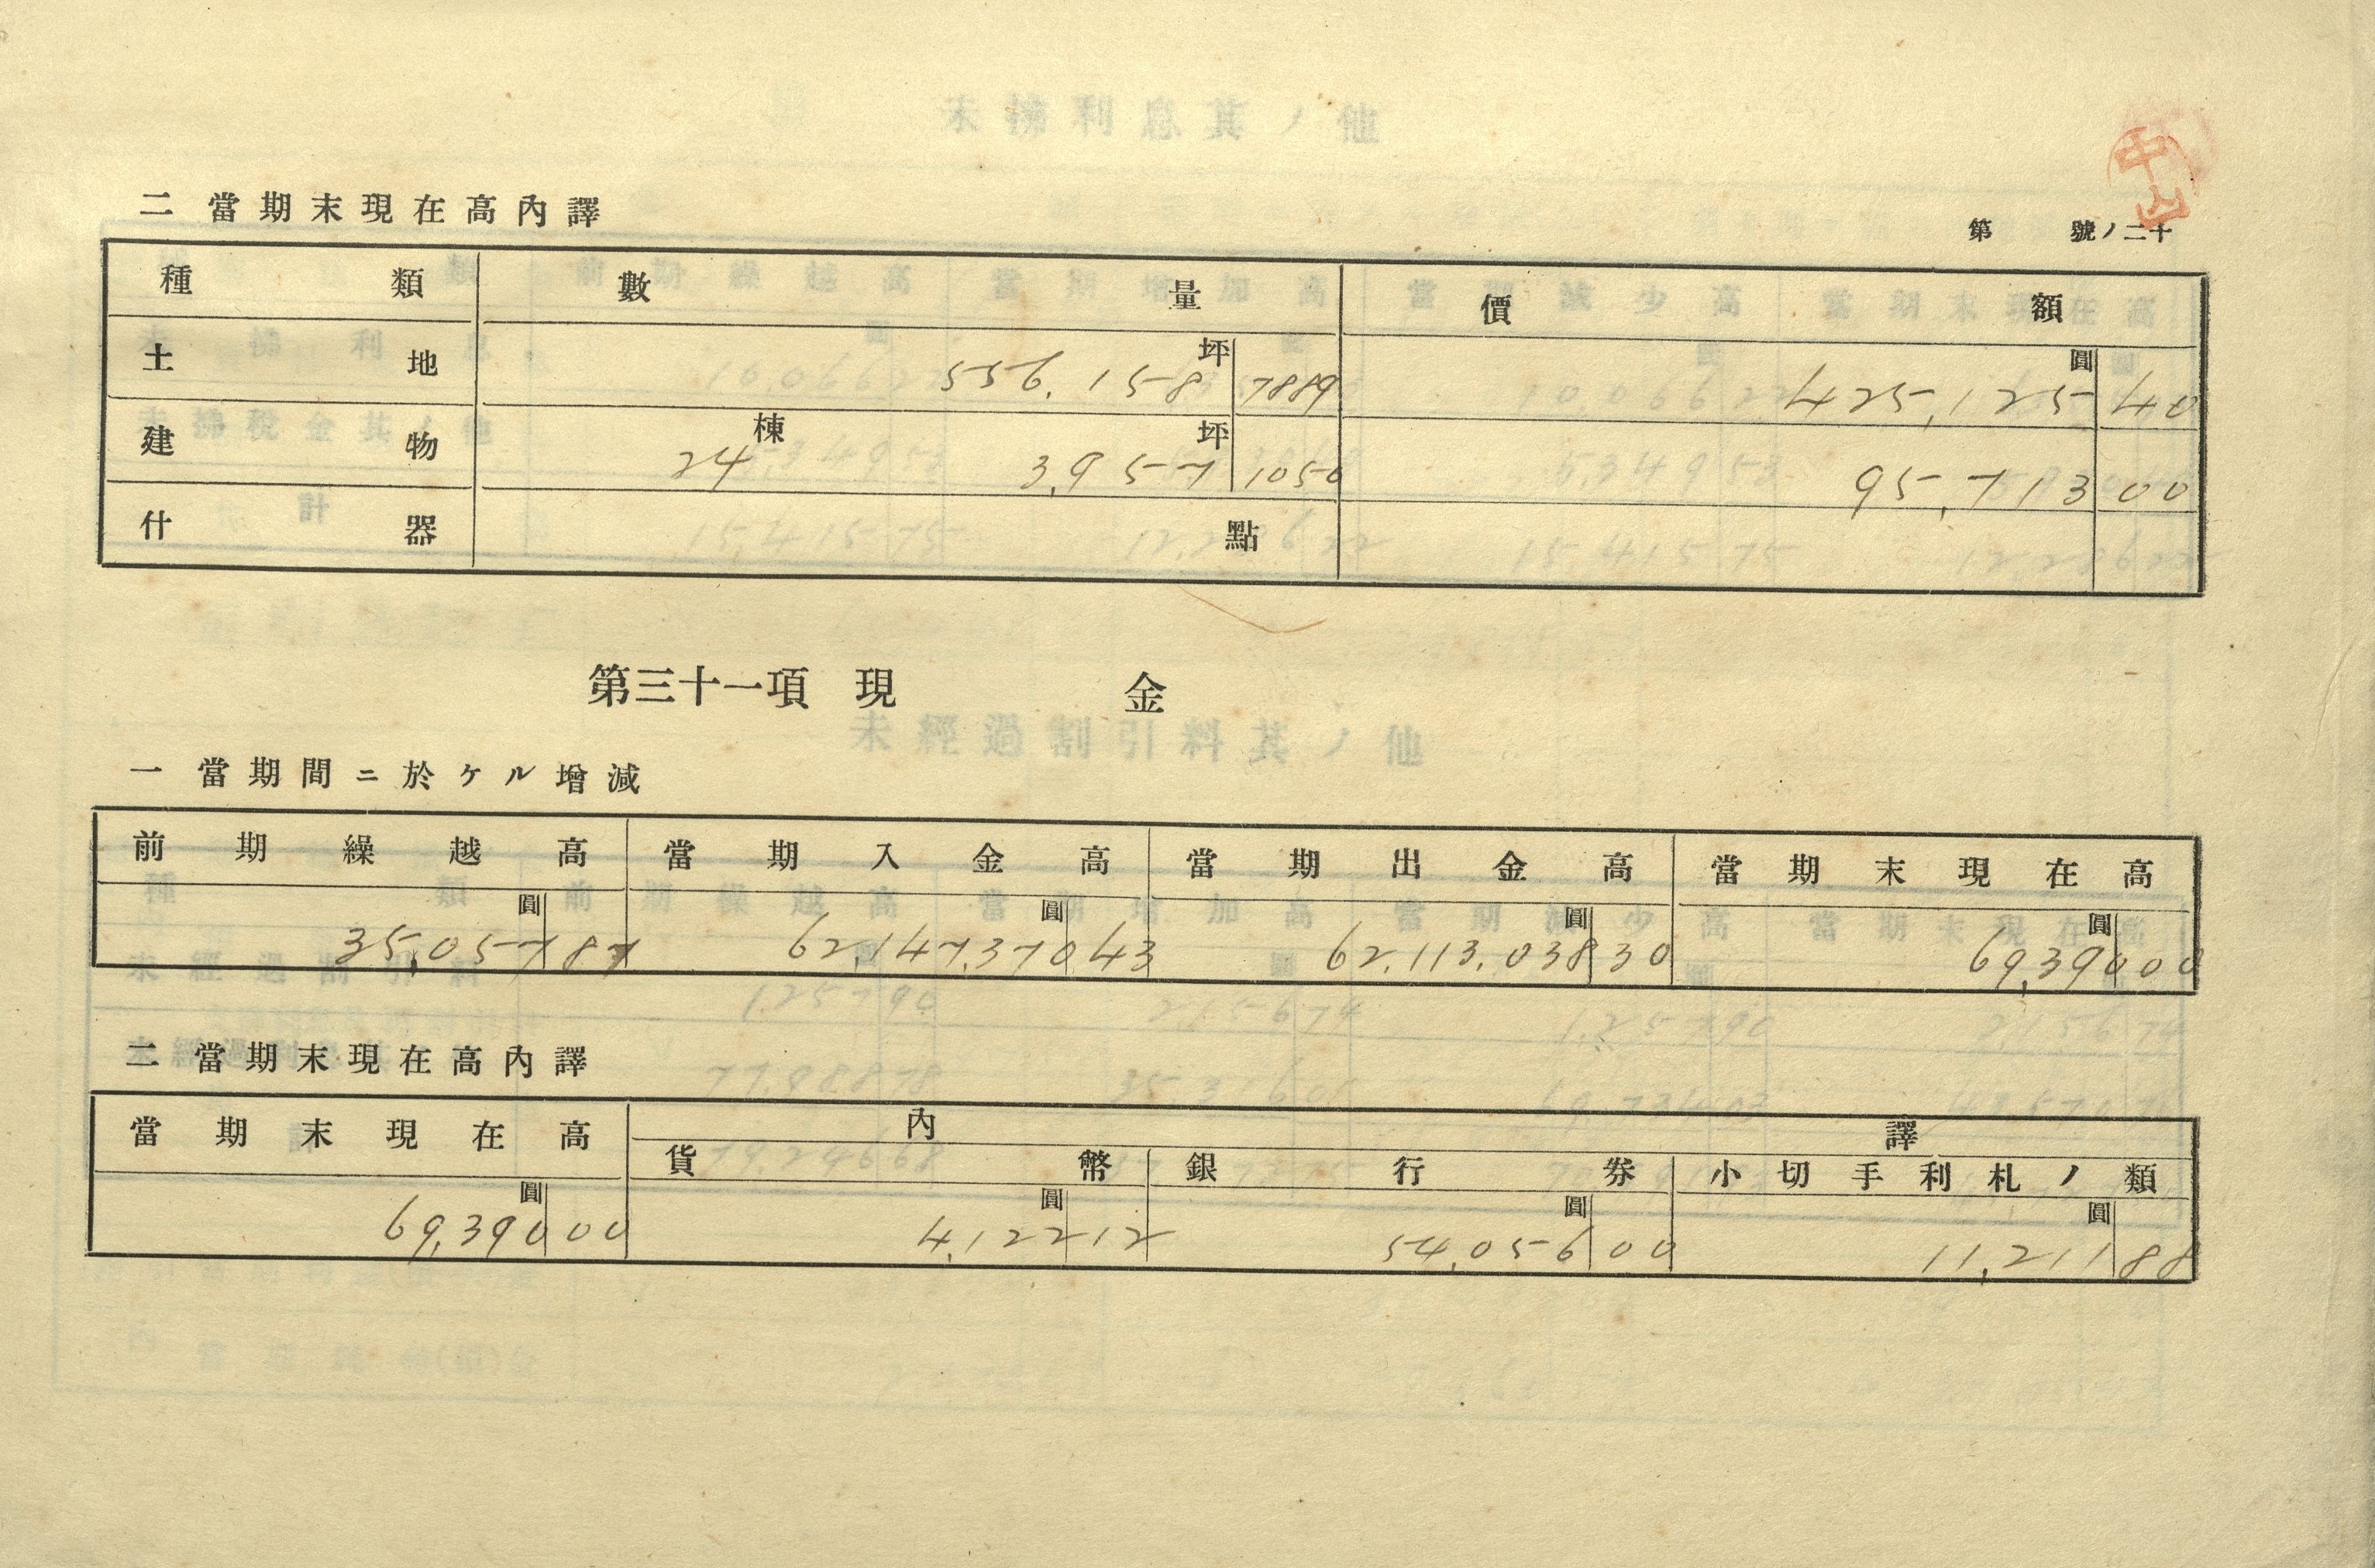 中山
二 當期末現在高內譯
第 號ノ二十
種類 數量 價額
土地 坪 556,158 7889 圓 425,125 40
建物 棟 24 坪 3,957 1050 95,713 00
什器 點
第三十一項 現金
一 當期間ニ於ケル增減
前期繰越高 當期入金高 當期出金高 當期末現在高
圓 圓 圓 圓
35,057 87 62,147,370 43 62,113,038 30 69,390 00
二 當期末現在高內譯
當期末現在高 內譯
貨幣 銀行券 小切手利札ノ類
圓 圓 圓 圓
69,390 00 4,122 12 54,056 00 11,211 88